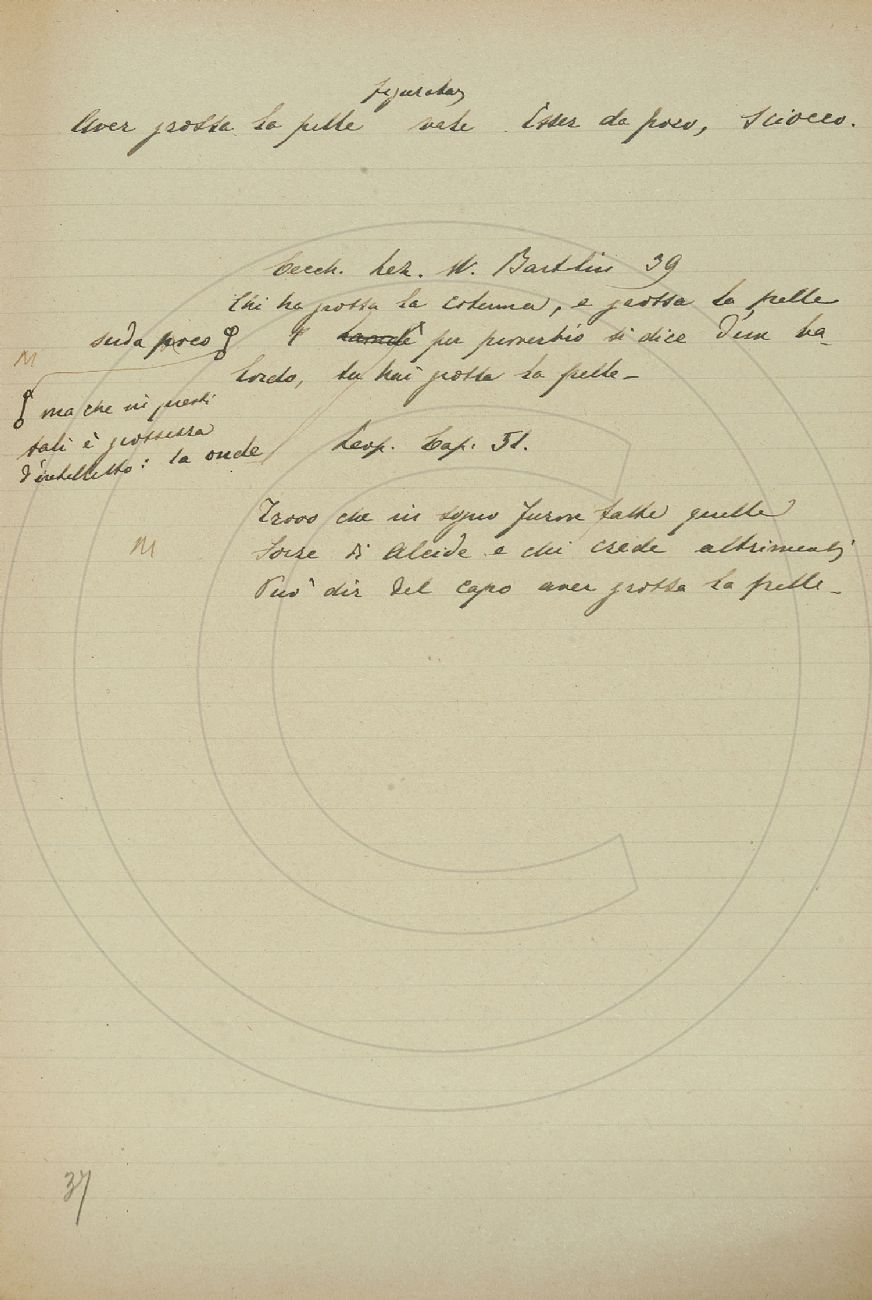 figuratam
Aver grossa la pelle vale Esser da poco, Sciocco.
Cecch. Lez. M. Bartolin 39
Chi ha grossa la cotenna, e grossa la pelle
suda poco E per proverbio si dice d'un ba-
lordo, tu hai grossa la pelle -
M
ma che in questi
tali è grossezza
d'intelletto: la onde
Leop. Cap. 51.
Trovo che in sogno furon fatte quelle
M
Forze di Alcide e chi crede altrimenti
Può dir del capo aver grossa la pelle -
37